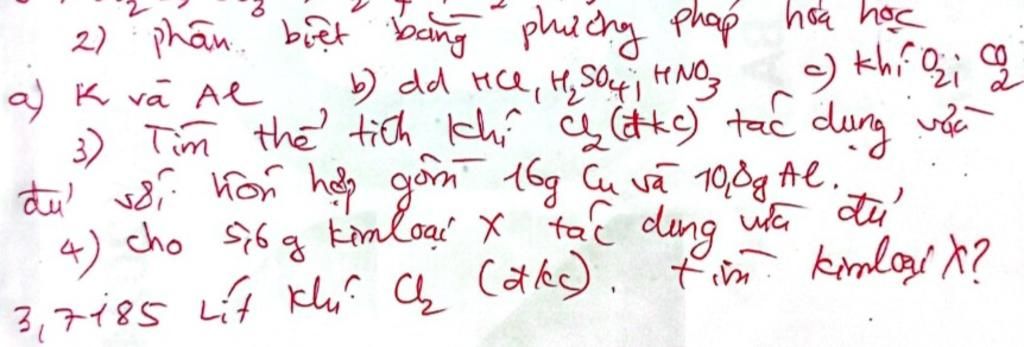 2) phân biệt bằng phương pháp hóa học
a) K và Al b) dd HCl, H2SO4, HNO3 c) khí O2; CO2
3) Tìm thể tích khí Cl2 (đkc) tác dụng vừa
đủ với hỗn hợp gồm 16g Cu và 10,8g Al.
4) cho 5,6 g kim loại X tác dụng vừa đủ
3,7185 Lít khí Cl2 (đkc). tìm kim loại X?